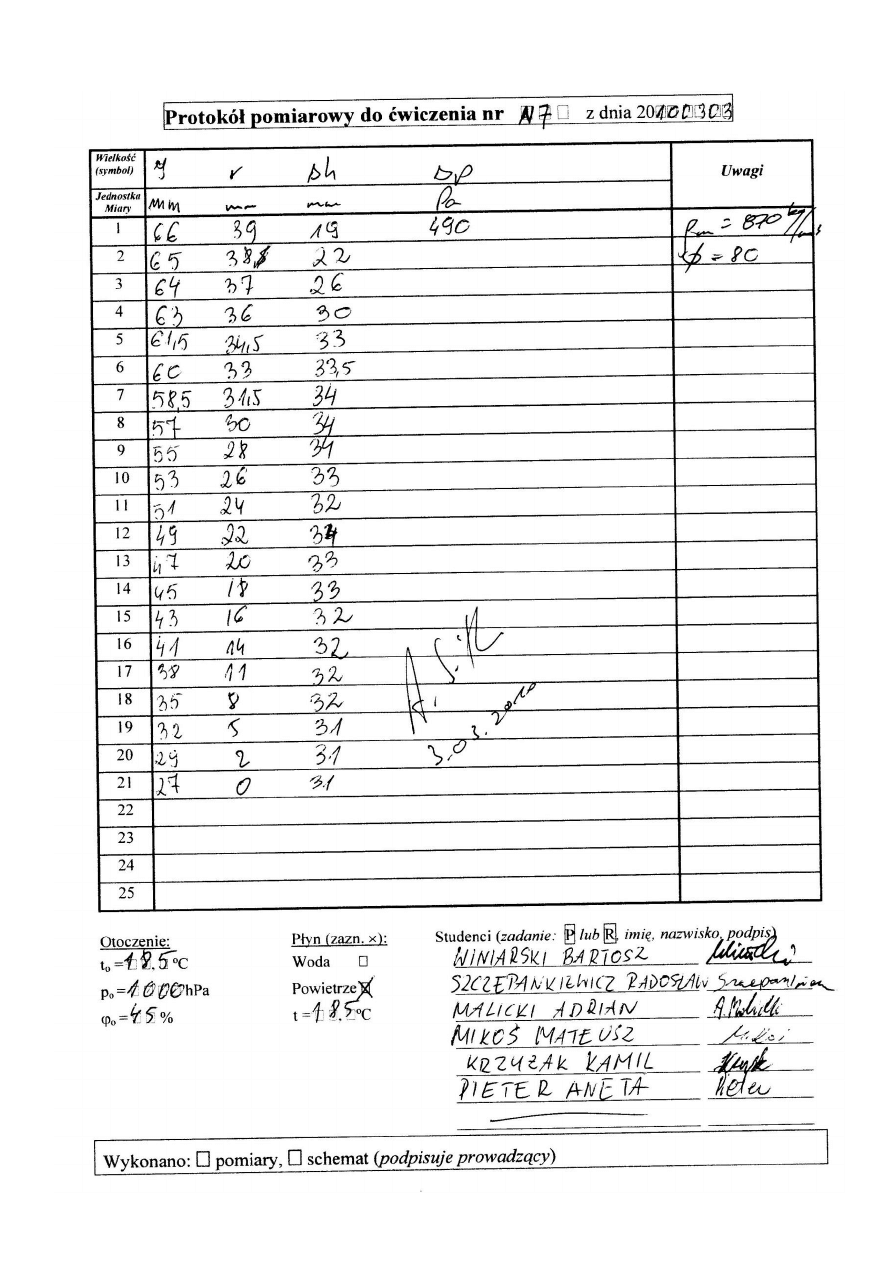 Protokół pomiarowy do ćwiczenia nr N7 z dnia 20100303
Wielkość (symbol) y r Δh Δp Uwagi
Jednostka Miary mm mm mm Pa
1 66 39 19 490 ρm = 870 kg/m³
2 65 38 22 ϕ = 80
3 64 37 26
4 63 36 30
5 61,5 34,5 33
6 60 33 33,5
7 58,5 31,5 34
8 57 30 34
9 55 28 34
10 53 26 33
11 51 24 32
12 49 22 34
13 47 20 33
14 45 18 33
15 43 16 32
16 41 14 32
17 38 11 32
18 35 8 32
19 32 5 31
20 29 2 31
21 27 0 31
3.03.2010
22
23
24
25
Otoczenie: Płyn (zazn. ×): Studenci (zadanie: P lub R, imię, nazwisko, podpis)
to = 18,5 °C Woda □ WINIARSKI BARTOSZ
po = 1000 hPa Powietrze ☒ SZCZEPANKIEWICZ RADOSŁAW Szczepankiewicz
φo = 45 % t = 18,5 °C MALICKI ADRIAN A. Malicki
MIKOŚ MATEUSZ
KRZYŻAK KAMIL
PIETER ANETA Pieter
Wykonano: □ pomiary, □ schemat (podpisuje prowadzący)